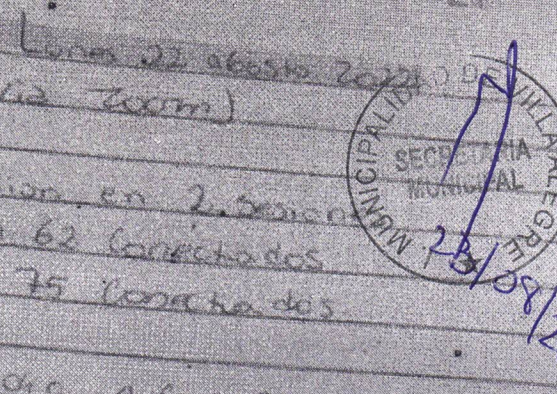 Lunes 22 agosto 2022
via Zoom)
en 2 sesion
62 Conectados
75 Conectados
MUNICIPALIDAD DE VILLA ALEGRE
SECRETARIA
MUNICIPAL
23/08/2